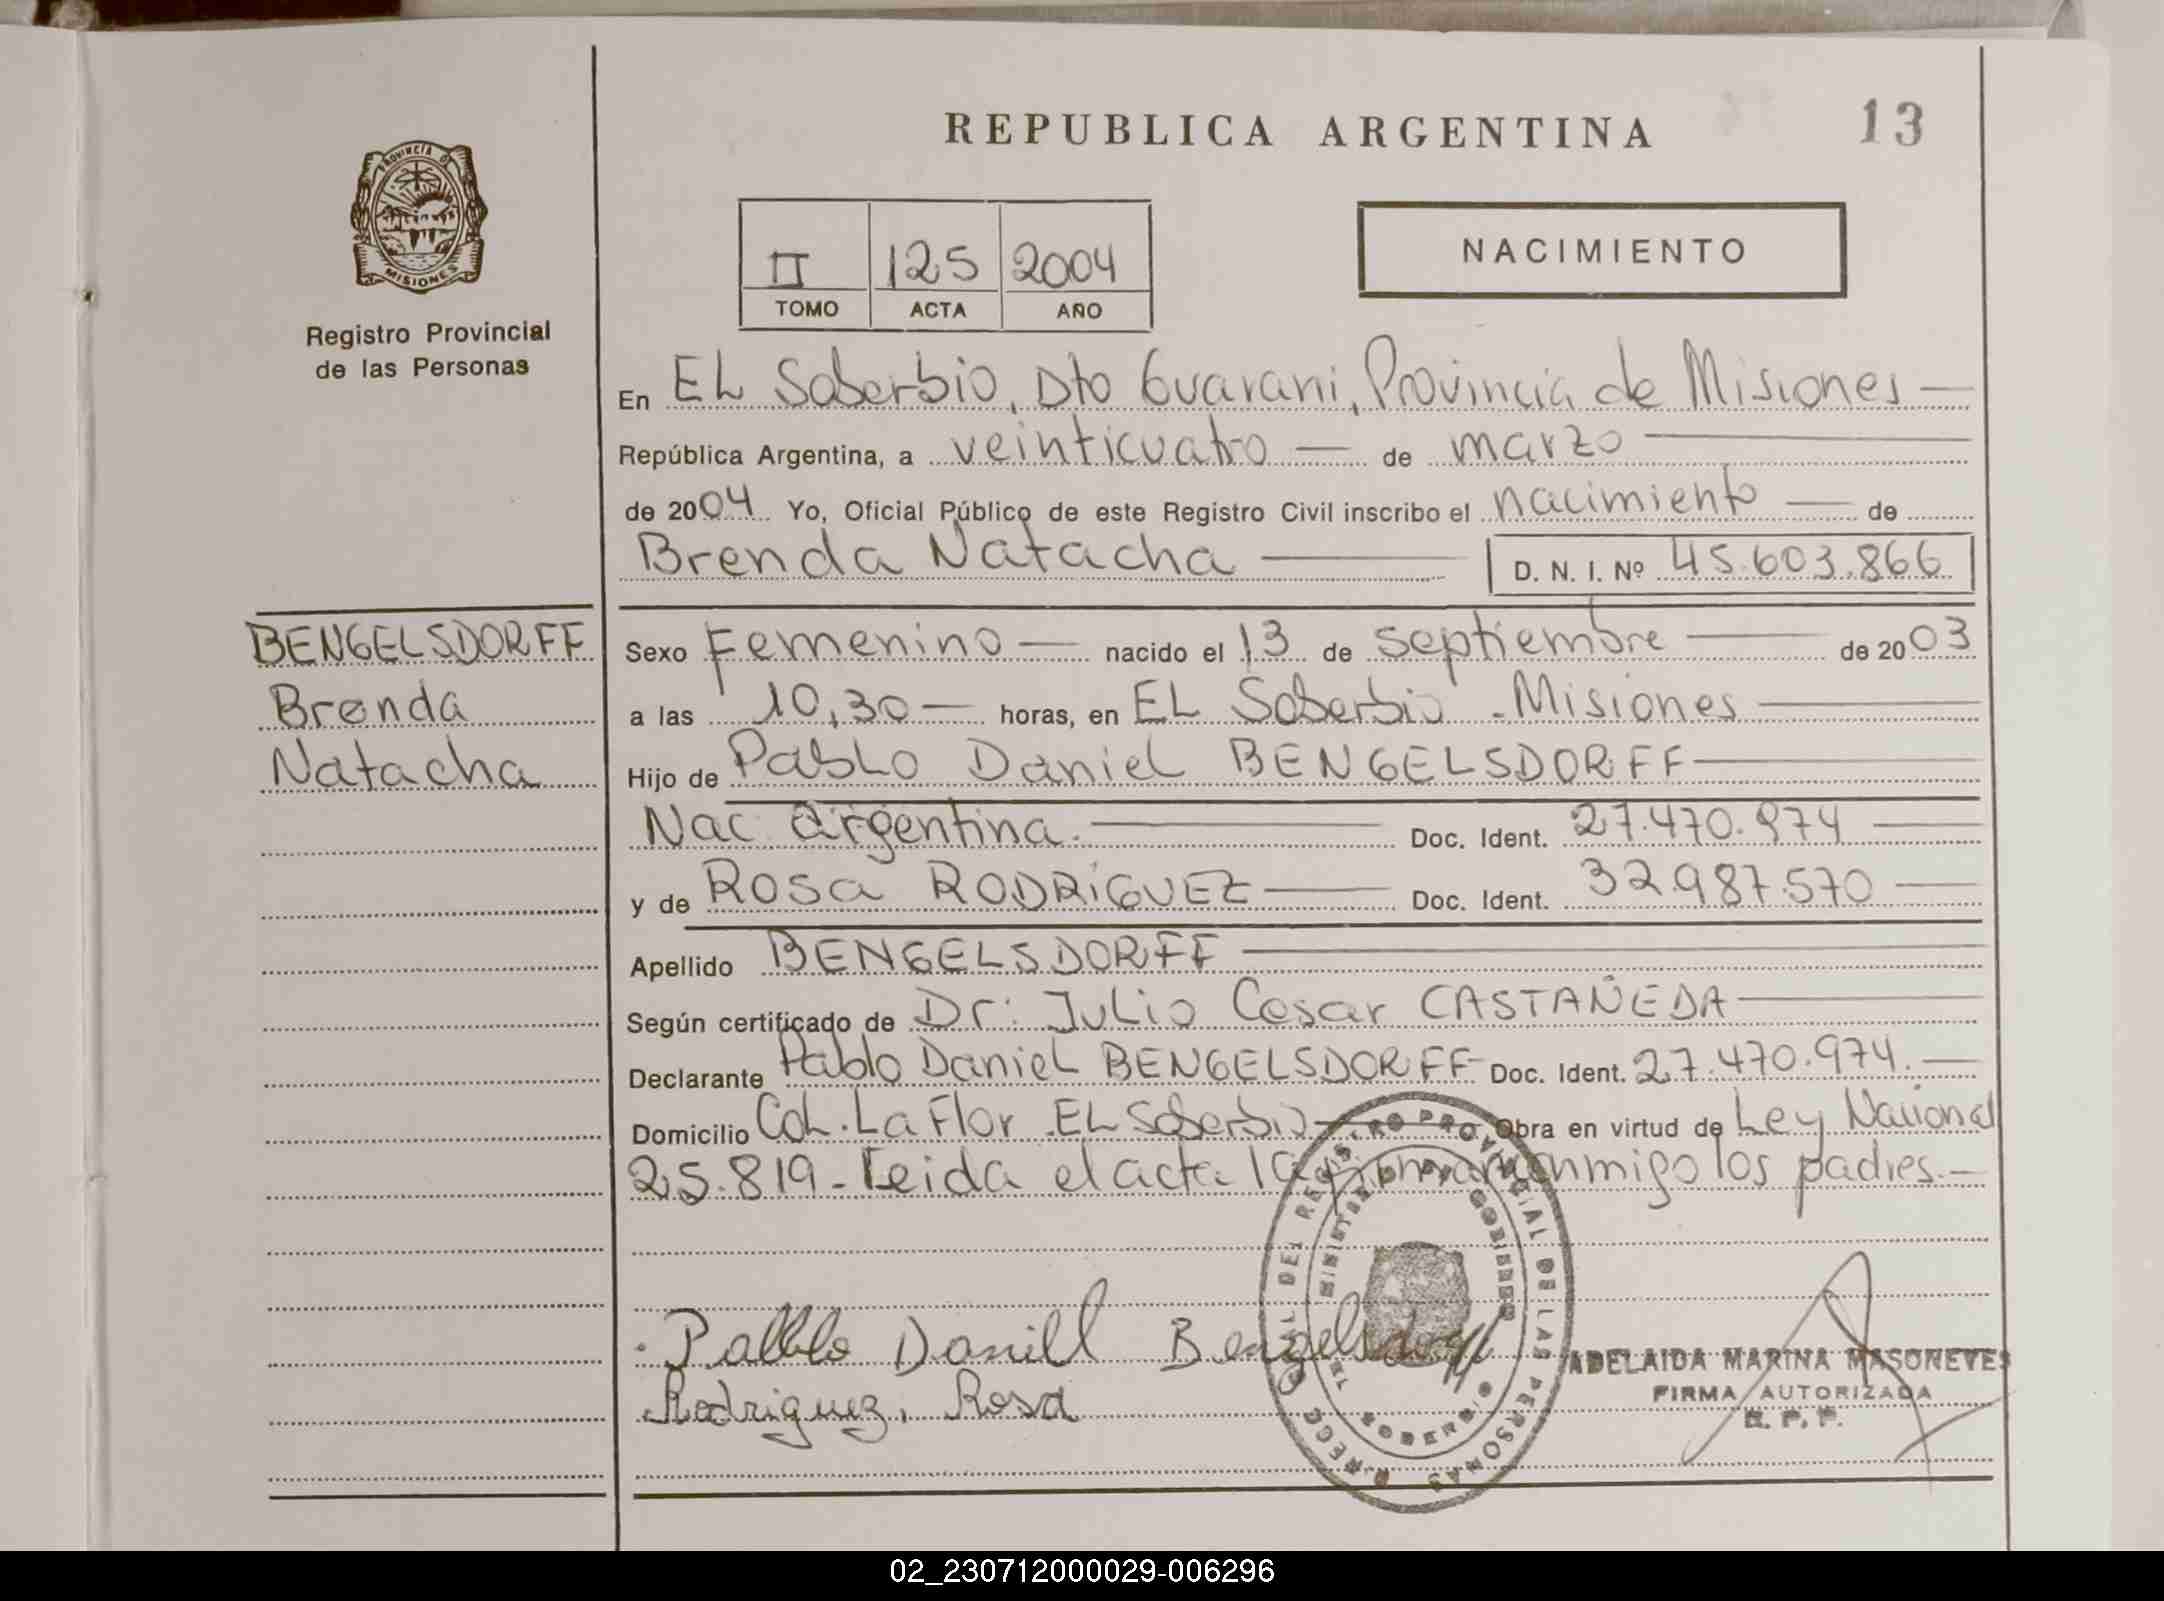 REPUBLICA ARGENTINA
13
PROVINCIA DE
MISIONES
Registro Provincial
de las Personas
II 125 2004
TOMO ACTA AÑO
NACIMIENTO
En EL Soberbio, Dto Guarani, Provincia de Misiones
República Argentina, a veinticuatro de marzo
de 2004 Yo, Oficial Público de este Registro Civil inscribo el nacimiento de
Brenda Natacha D. N. I. Nº 45.603.866
BENGELSDORFF
Brenda
Natacha
Sexo Femenino nacido el 13 de septiembre de 2003
a las 10,30 horas, en EL Soberbio - Misiones
Hijo de Pablo Daniel BENGELSDORFF
Nac argentina. Doc. Ident. 27.470.974
y de Rosa RODRIGUEZ Doc. Ident. 32.987.570
Apellido BENGELSDORFF
Según certificado de Dr: Julio Cesar CASTAÑEDA
Declarante Pablo Daniel BENGELSDORFF Doc. Ident. 27.470.974.
Domicilio Col. La Flor EL Soberbio Obra en virtud de Ley Nacional
25.819 - Leida el acta la los padres.
DEL REGISTRO PROVINCIAL DE LAS PERSONAS
SOBERBIO
Pablo Daniel Bengelsdorff
Rodriguez, Rosa
ADELAIDA MARINA MASONEVES
FIRMA AUTORIZADA
R. P. P.
02_230712000029-006296